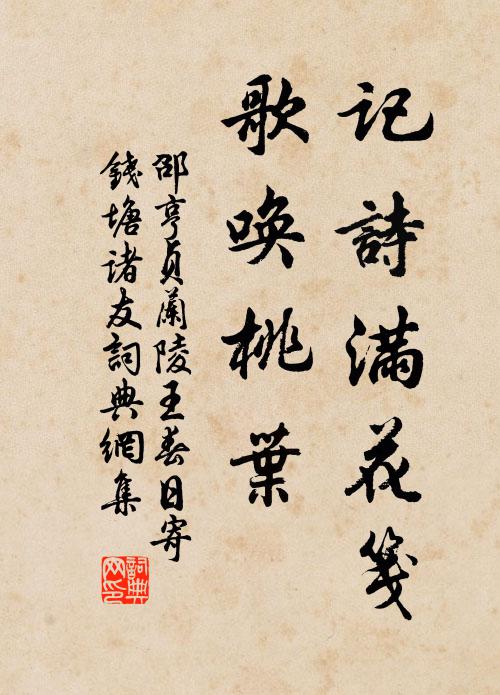 记詩满花箋
歌唤桃葉
邵亨貞蘭陵王春日寄
錢塘诸友詞典網集
詞典网印